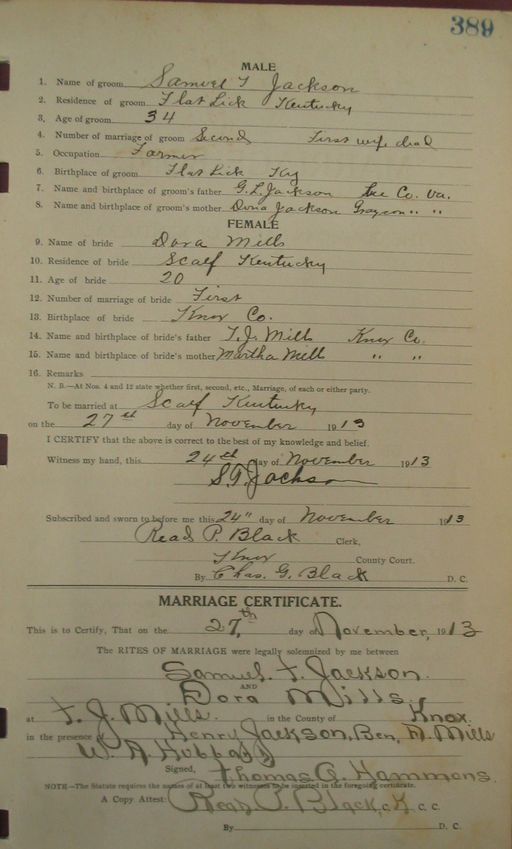 389
MALE
1. Name of groom Samuel T Jackson
2. Residence of groom Flat Lick Kentucky
3. Age of groom 34
4. Number of marriage of groom Second First wife dead
5. Occupation Farmer
6. Birthplace of groom Flat Lick Ky
7. Name and birthplace of groom's father G. L. Jackson Lee Co. Va.
8. Name and birthplace of groom's mother Jackson Grayson " "
FEMALE
9. Name of bride Dora Mills
10. Residence of bride Scalf Kentucky
11. Age of bride 20
12. Number of marriage of bride First
13. Birthplace of bride Knox Co.
14. Name and birthplace of bride's father T. J. Mills Knox Co.
15. Name and birthplace of bride's mother Martha Mills " "
16. Remarks
N. B.—At Nos. 4 and 12 state whether first, second, etc., Marriage, of each or either party.
To be married at Scalf Kentucky
on the 27th day of November 1913
I CERTIFY that the above is correct to the best of my knowledge and belief.
Witness my hand, this 24th day of November 1913
S. T. Jackson
Subscribed and sworn to before me this 24" day of November 1913
Read P. Black Clerk,
Knox County Court.
By Chas. G. Black D. C.
MARRIAGE CERTIFICATE.
This is to Certify, That on the 27th day of November, 1913
The RITES OF MARRIAGE were legally solemnized by me between
Samuel. T. Jackson.
AND
Dora Mills.
at T. J. Mills. in the County of Knox
in the presence of Henry Jackson, Ben, A. Mills
W. A. Hubbard
Signed, Thomas G. Hammons.
NOTE—The Statute requires the names of at least two witnesses to be inserted in the foregoing certificate.
A Copy. Attest: Read P. Black, C. K. C. C.
By D. C.